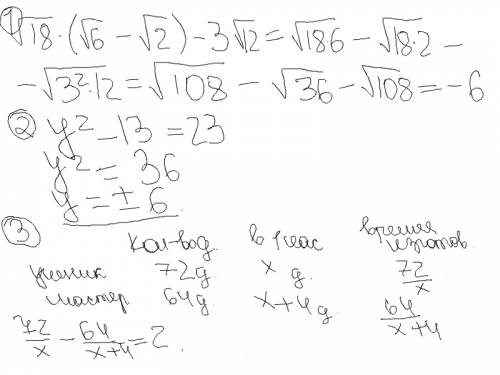 ① √18 · (√6 − √2) − 3√12 = √18·6 − √18·2 −
− √3²·12 = √108 − √36 − √108 = −6.
② y² − 13 = 23
y² = 36
y = ± 6
③ Кол-во д. в 1 час время изготов.
ученик 72д. x д. 72/x
мастер 64д. x+4 д. 64/(x+4)
72/x − 64/(x+4) = 2.